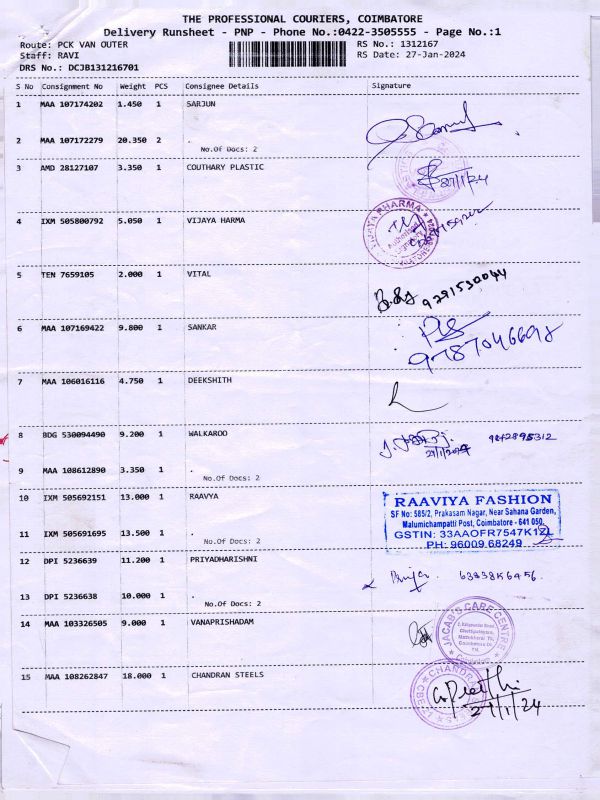 THE PROFESSIONAL COURIERS, COIMBATORE
Delivery Runsheet - PNP - Phone No.:0422-3505555 - Page No.:1
Route: PCK VAN OUTER
RS No.: 1312167
Staff: RAVI
RS Date: 27-Jan-2024
DRS No.: DCJB131216701
S No Consignment No Weight PCS Consignee Details Signature
1 MAA 107174202 1.450 1 SARJUN
2 MAA 107172279 20.350 2 .
No.Of Docs: 2
3 AMD 28127107 3.350 1 COUTHARY PLASTIC
27/1/24
4 IXM 505800792 5.050 1 VIJAYA HARMA
VIJAYA PHARMA
5 TEN 7659105 2.000 1 VITAL
9291530044
6 MAA 107169422 9.800 1 SANKAR
9787046698
7 MAA 106016116 4.750 1 DEEKSHITH
8 BDG 530094490 9.200 1 WALKAROO
9842895312
9 MAA 108612890 3.350 1 .
No.Of Docs: 2
10 IXM 505692151 13.000 1 RAAVYA
RAAVIYA FASHION
SF No: 585/2, Prakasam Nagar, Near Sahana Garden,
Malumichampatti Post, Coimbatore - 641 050.
GSTIN: 33AAOFR7547K1ZL
PH: 96009 68249
11 IXM 505691695 13.500 1 .
No.Of Docs: 2
12 DPI 5236639 11.200 1 PRIYADHARISHNI
6383856456
13 DPI 5236638 10.000 1 .
No.Of Docs: 2
14 MAA 103326505 9.000 1 VANAPRISHADAM
JACAB'S CARE CENTRE
15 MAA 108262847 18.000 1 CHANDRAN STEELS
CHANDRAN
27/1/24